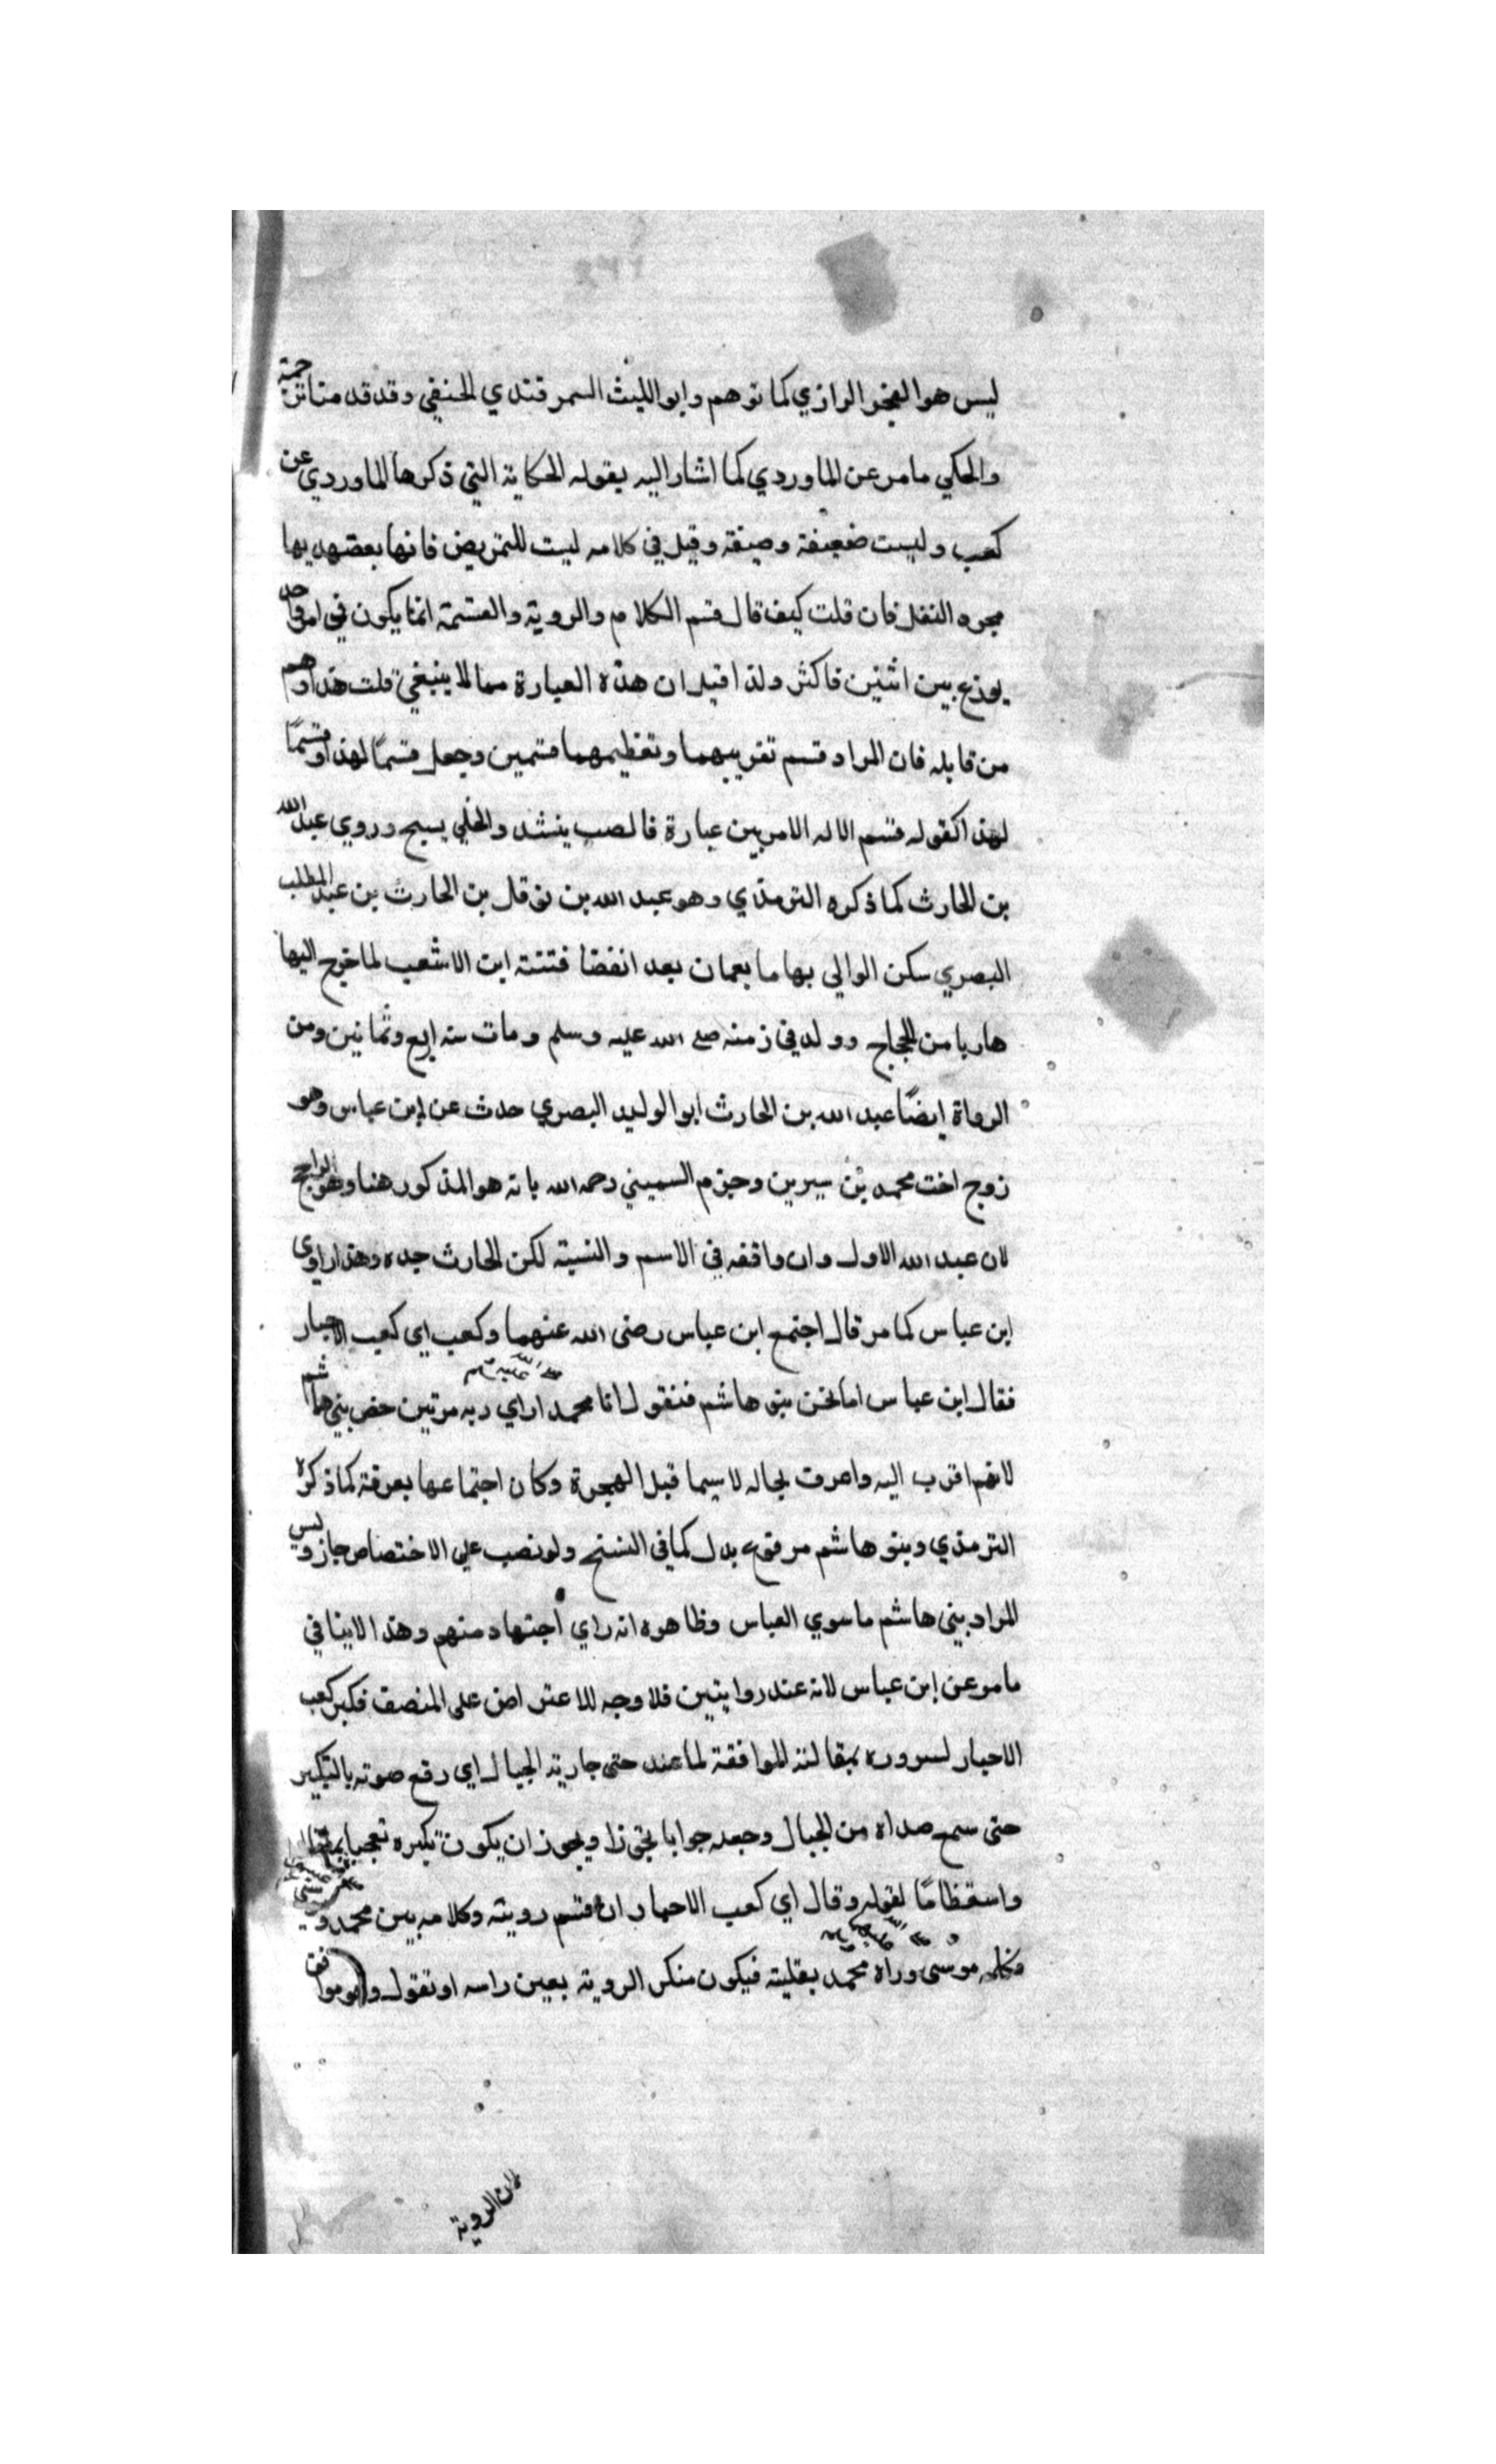 ليس هو الفخر الرازي كما توهم وابو الليث السمرقندي الحنفي وقد قدمنا ترجمته
والحكي ما مر عن الماوردي كما اشار اليه بقوله الحكاية التي ذكرها الماوردي عن
كعب وليست ضعيفة وصيغة وقيل في كلامه ليست للتمريض فانها بعضهم يها
مجرد النقل فان قلت كيف قال قسم الكلام والروية والقسمة انما يكون في امر واحد
يوزع بين اثنين فاكثر ولذا قيل ان هذه العبارة مما لا ينبغي قلت هذا وهم
من قايله فان المراد قسم تقريبهما وتعظيمهما قسمين وجعل قسمًا لهذا وقسمًا
لهذا كقوله قسم الاله الامر بين عبارة فالصب ينشد والخلي يسبح وروي عبد الله
بن الحارث كما ذكره الترمذي وهو عبد الله بن نوفل بن الحارث بن عبد المطلب
البصري سكن الوالي بها ما بعمان بعد انقضا فتنة ابن الاشعب لما خرج اليها
هاربا من الحجاج وولد في زمنه صلى الله عليه وسلم ومات سنه اربع وثمانين ومن
الرواة ايضًا عبد الله بن الحارث ابو الوليد البصري حدث عن ابن عباس وهو
زوج اخت محمد بن سيرين وجزم السميني رحمه الله بانه هو المذكور هنا وهو الراجح
لان عبد الله الاول وان وافقه في الاسم والنسبة لكن الحارث جده وهذا راوي
ابن عباس كما مر قال اجتمع ابن عباس رضى الله عنهما وكعب اي كعب الاحبار
فقال ابن عباس اما نحن بنو هاشم فنقول ان محمدا صلى الله عليه وسلم راي ربه مرتين خص بني هاشم
لانهم اقرب اليه واعرف بحاله لا سيما قبل الهجرة وكان اجتماعها بعرفة كما ذكره
الترمذي وبنو هاشم مرفوع بدل كما في النسخ ولو نصب على الاختصاص جاز وليس
المراد ببني هاشم ما سوي العباس وظاهره انه راي اجتهاد منهم وهذا لا ينافي
ما مر عن ابن عباس لانه عند روايتين فلا وجه للاعتراض على المنصف فكبر كعب
الاحبار لسروره بمقالته الموافقة لما عنده حتى جاوبته الجبال اي رفع صوته بالتكبير
حتى سمع صداه من الجبال وجعله جوابا تجوزا ويجوز ان يكون تكبيره تعجبا
واستعظامًا لقوله وقال اي كعب الاحبار ان الله قسم رويته وكلامه بين محمد و
وكلمه موسى وراه محمد صلى الله عليه وسلم بقلبه فيكون منكر الروية بعين راسه او تقول وهو موافق
لان الروية